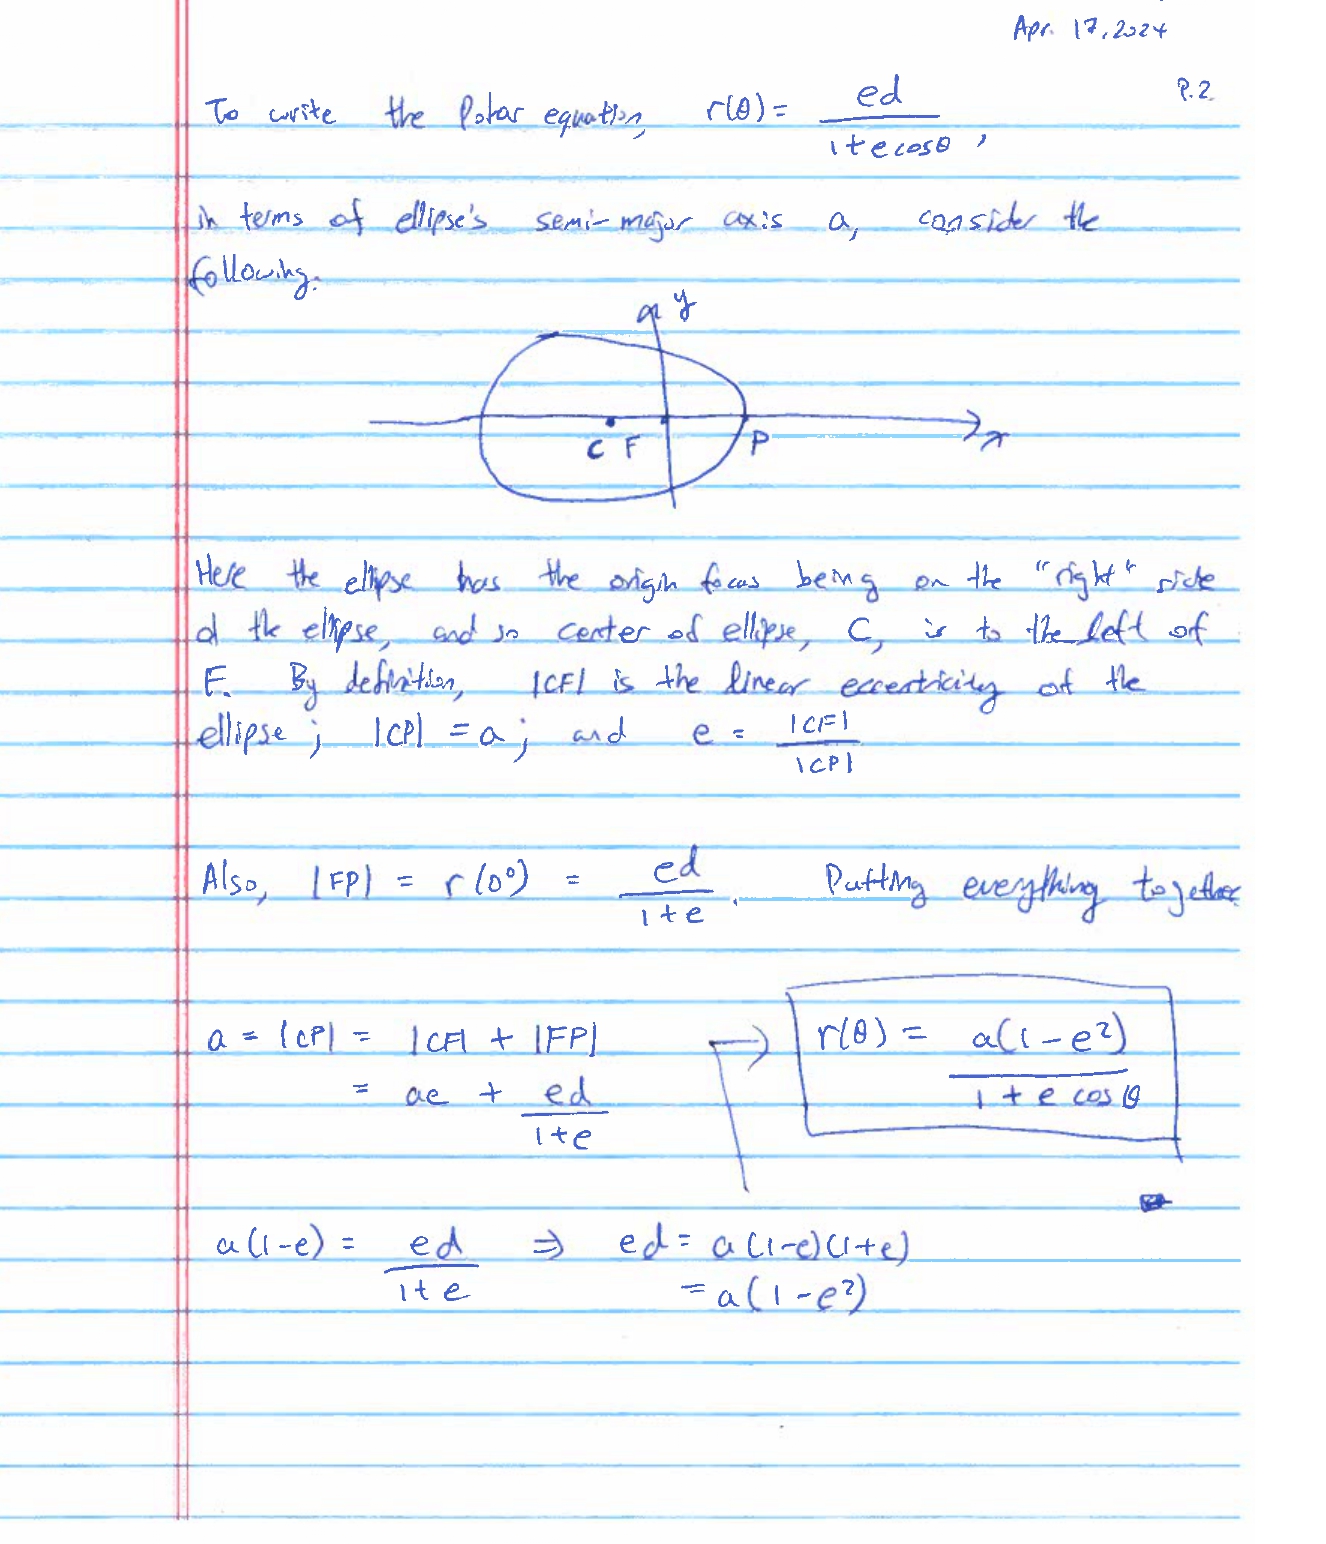 Apr. 17, 2024
P.2
To write the Polar equation, r(θ) = ed / (1 + e cosθ),
in terms of ellipse's semi-major axis a, consider the
following:
y
C F P x
Here the ellipse has the origin focus being on the "right" side
of the ellipse, and so center of ellipse, C, is to the left of
F. By definition, |CF| is the linear eccentricity of the
ellipse; |CP| = a; and e = |CF| / |CP|
Also, |FP| = r(0°) = ed / (1 + e). Putting everything together
a = |CP| = |CF| + |FP|
= ae + ed / (1 + e)
→ r(θ) = a(1 - e²) / (1 + e cosθ)
a(1-e) = ed / (1 + e) ⇒ ed = a(1-e)(1+e)
= a(1 - e²)